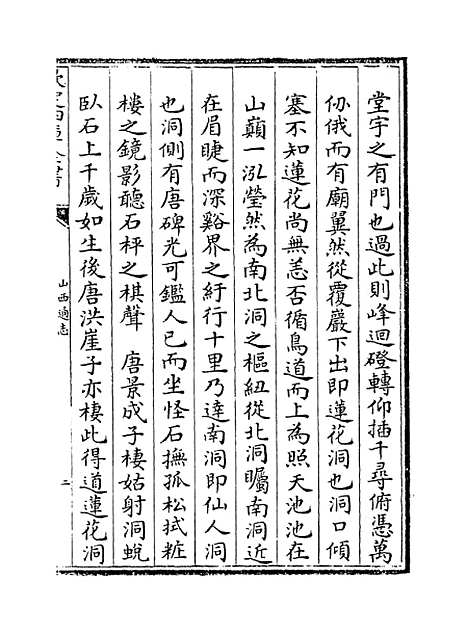 堂宇之有門也過此則峰迴磴轉仰插千尋俯憑萬
仞俄而有廟翼然從覆巖下出即蓮花洞也洞口傾
塞不知蓮花尚無恙否循鳥道而上為照天池池在
山巔一泓瑩然為南北洞之樞紐從北洞矚南洞近
在眉睫而深谿界之紆行十里乃達南洞即仙人洞
也洞側有唐碑光可鑑人已而坐怪石撫孤松拭粧
樓之鏡影聽石枰之棋聲　唐景成子棲姑射洞蛻
臥石上千歲如生後唐洪崖子亦棲此得道蓮花洞
欽定四庫全書
山西通志
二